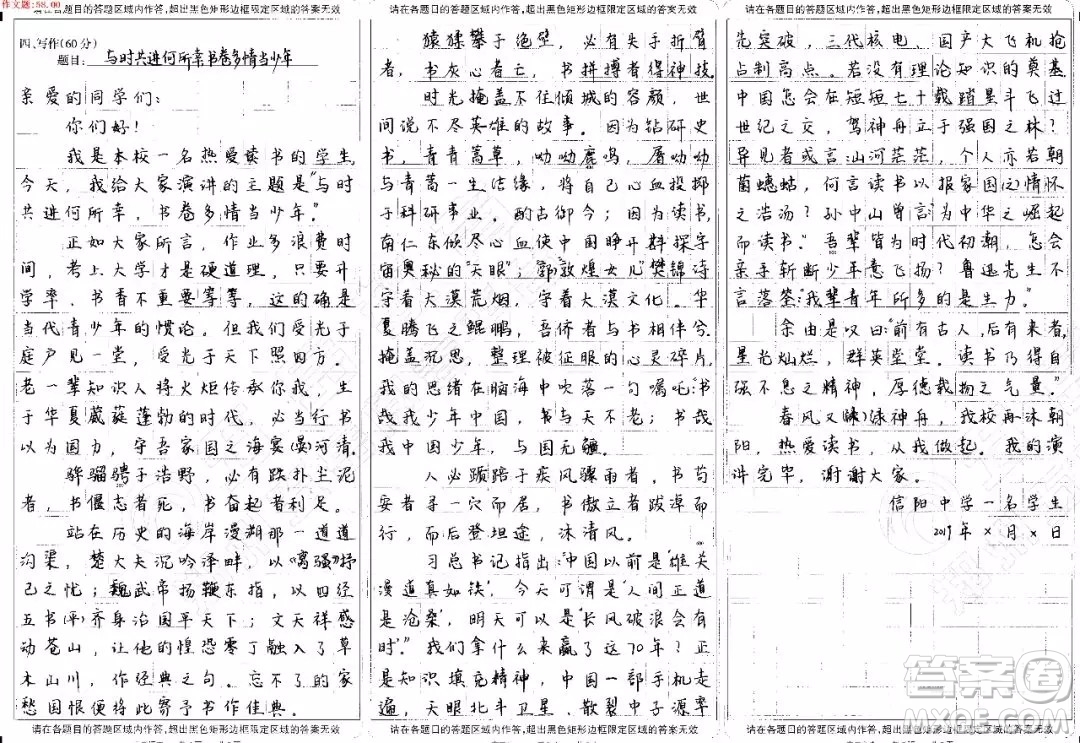 作文题:58.00
请在各题目的答题区域内作答,超出黑色矩形边框限定区域的答案无效
四、写作(60分)
题目: 与时共进何所幸书卷多情当少年
亲爱的同学们:
你们好!
我是本校一名热爱读书的学生,
今天,我给大家演讲的主题是“与时
共进何所幸,书卷多情当少年。”
正如大家所言,作业多浪费时
间,考上大学才是硬道理,只要升
学率,书看不重要等等,这的确是
当代青少年的惯论。但我们受光于
庭户见一堂,受光于天下照四方。
老一辈知识人将火炬传承你我,生
于华夏葳蕤蓬勃的时代,必当行书
以为国力,守吾家国之海宴(晏)河清。
骅骝骋于浩野,必有跌扑尘泥
者,书偃志者死,书奋起者利足。
站在历史的海岸漫溯那一道道
沟渠,楚大夫沉吟泽畔,以《离骚》抒
己之忧;魏武帝扬鞭东指,以四经
五书(平)齐身治国平天下;文天祥感
动苍山,让他的惶恐零丁融入了草
木山川,作经典之句。忘不了的家
愁国恨便将此寄予书作佳典。
请在各题目的答题区域内作答,超出黑色矩形边框限定区域的答案无效
请在各题目的答题区域内作答,超出黑色矩形边框限定区域的答案无效
猿猱攀于绝壁,必有失手折臂
者,书灰心者亡,书拼搏者得神技。
时光掩盖不住倾城的容颜,世
间说不尽英雄的故事。因为钻研史
书,青青蒿草,呦呦鹿鸣,屠呦呦
与青蒿一生结缘,将自己心血投掷
于科研事业。酌古御今;因为读书,
南仁东倾尽心血使中国睁开斟探宇
宙奥秘的“天眼”;“敦煌女儿”樊锦诗
守着大漠荒烟,守着大漠文化。华
夏腾飞之鲲鹏,吾侪者与书相伴兮。
掩盖沉思,整理被征服的心灵碎片,
我的思绪在脑海中吹落一句嘱咤:书
哉我少年中国,书与天不老;书哉
我中国少年,与国无疆。
人必踬踣于疾风骤雨者,书苟
安者寻一穴而居,书傲立者跋淖而
行,而后登坦途,沐清风。
习总书记指出:“中国以前是‘雄关
漫道真如铁’,今天可谓是‘人间正道
是沧桑’,明天可以是‘长风破浪会有
时’。”我们拿什么来赢了这70年?正
是知识填充精神,中国一部手机走
遍,天眼北斗卫星、散裂中子源率
请在各题目的答题区域内作答,超出黑色矩形边框限定区域的答案无效
请在各题目的答题区域内作答,超出黑色矩形边框限定区域的答案无效
先突破,三代核电、国产大飞机抢
占制高点。若没有理论知识的奠基,
中国怎会在短短七十载踏星斗飞过
世纪之交,驾神舟立于强国之林?
异见者或言:山河茫茫,个人亦若朝
菌蟪蛄,何言读书以报家国之情怀
之浩汤?孙中山曾言“为中华之崛起
而读书。”吾辈皆为时代初潮,怎会
亲手斩断少年意飞扬?鲁迅先生不
言落笙“我辈青年所多的是生力。”
余由是叹曰:“前有古人,后有来者,
星光灿烂,群英堂堂。读书乃得自
强不息之精神,厚德载物之气量。”
春风又绿神舟,我校再沐朝
阳,热爱读书,从我做起。我的演
讲完毕,谢谢大家。
信阳中学一名学生
2019年×月×日
答案圈
MXQE.COM
请在各题目的答题区域内作答,超出黑色矩形边框限定区域的答案无效